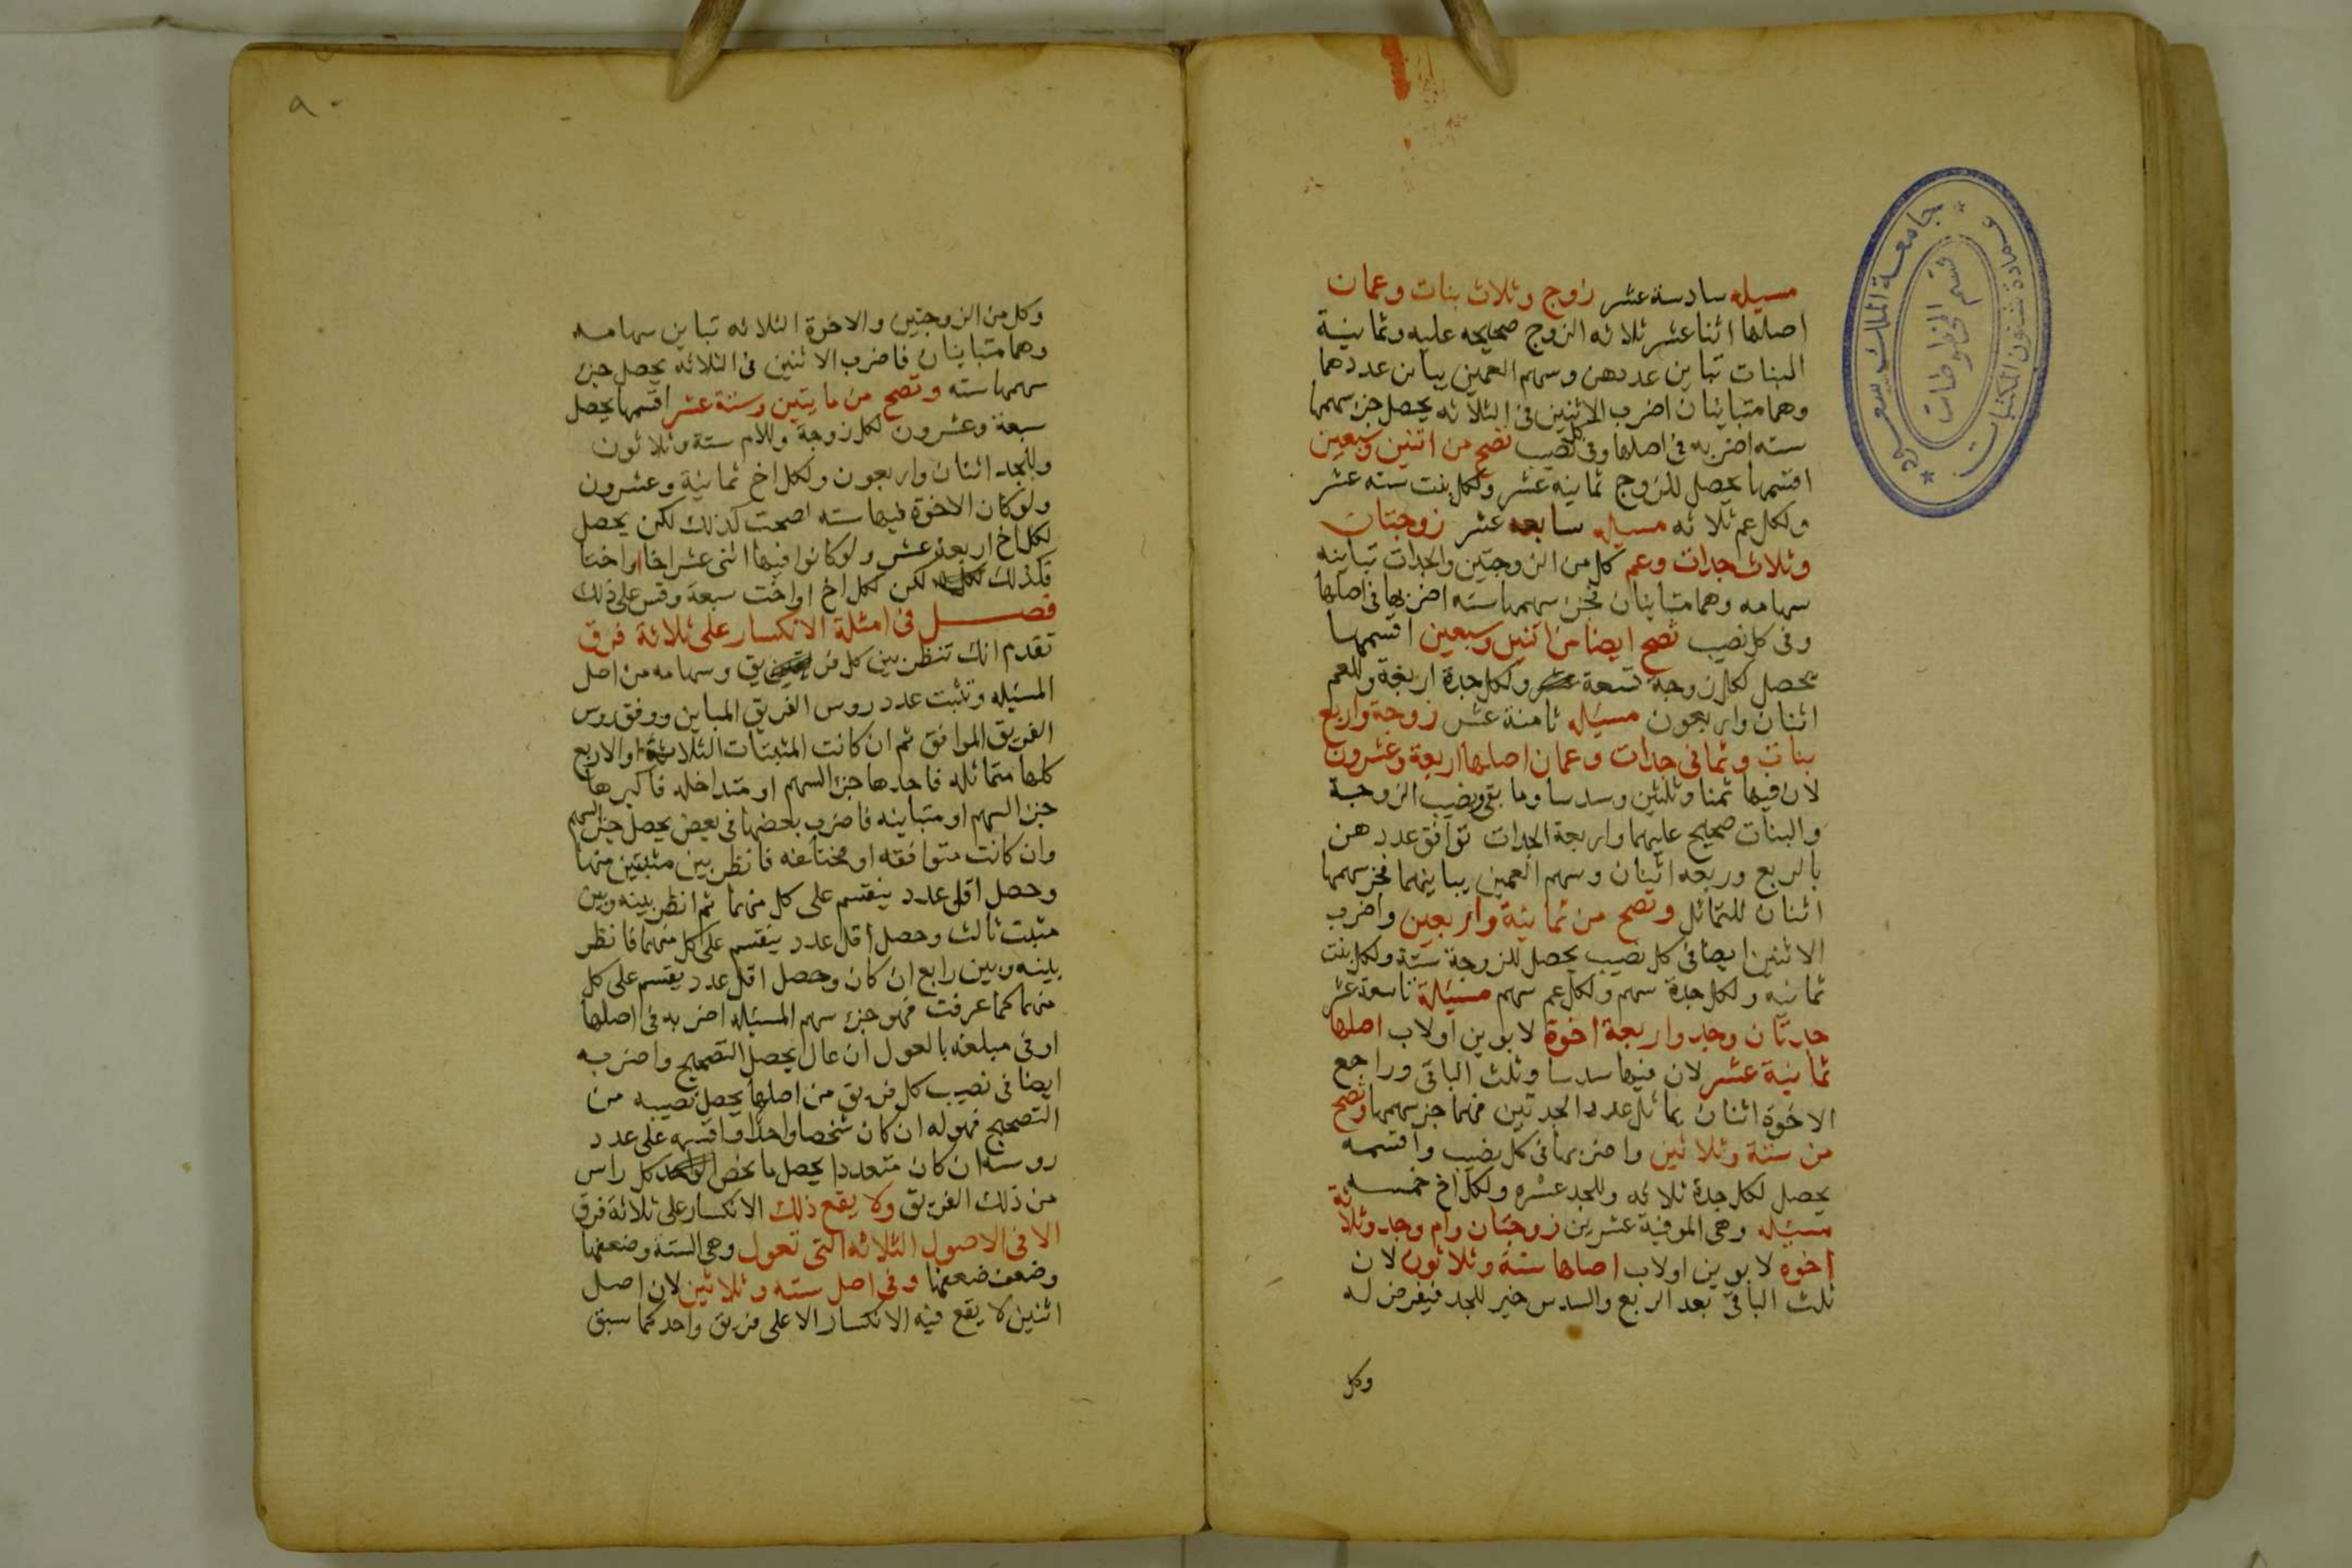 مسيله سادسة عشر زاوج وثلاث بنات وعمان
اصلها اثنا عشر ثلاثه الزوج صحيحه عليه وثمانية
البنات تباين عددهن وسهم العمين يباين عددهما
وهما متباينان اضرب الاثنين في الثلاثه يحصل جزء سهمها
سته اضربه في اصلها وفي كل نصيب تصح من اثنين وسبعين
اقسمها يحصل للزوج ثمانيه عشر ولكل بنت سته عشر
ولكل عم ثلاثه مسيله سابعه عشر زوجتان
وثلاث جدات وعم كل من الزوجتين والجدات تباينه
سهامه وهما متباينان فجزء سهمها سته اضربها في اصلها
وفي كل نصيب تصح ايضا من اثنين وسبعين اقسمها
يحصل لكل زوجة تسعة ولكل جدة اربعة وللعم
اثنان واربعون مسيله ثامنة عشر زوجة واربع
بنات وثماني جدات وعمان اصلها اربعة وعشرون
لان فيها ثمنا وثلثين وسدسا وما بقي ونصيب الزوجة
والبنات صحيح عليهما واربعة الجدات توافق عددهن
بالربع وربعه اثنان وسهم العمين يباينهما فجز سهمها
اثنان للتماثل وتصح من ثمانية واربعين واضرب
الاثنين ايضا في كل نصيب يحصل للزوجة ستة ولكل بنت
ثمانيه ولكل جدة سهم ولكل عم سهم مسيلة تاسعة عشر
جدتان وجد واربعة اخوة لابوين اولاب اصلها
ثمانية عشر لان فيها سدسا وثلث الباقي وراجع
الاخوة اثنان يماثل عدد الجدتين فهما جز سهمها وتصح
من ستة وثلاثين واضربهما في كل نصيب واقسمه
يحصل لكل جدة ثلاثه وللجد عشره ولكل اخ خمسه
مسيله وهي الموفية عشرين زوجتان وام وجد وثلاثة
اخوه لابوين اولاب اصلها ستة وثلاثون لان
ثلث الباقي بعد الربع والسدس خير للجد فيفرض له
وكل
جامعة الملك سعود
عمادة شئون المكتبات
قسم المخطوطات
٩٠
وكل من الزوجتين والاخوة الثلاثه تباين سهامه
وهما متباينان فاضرب الاثنين في الثلاثه يحصل جزء
سهمها سته وتصح من مايتين وستة عشر اقسمها يحصل
سبعة وعشرون لكل زوجة وللام ستة وثلاثون
وللجد اثنان واربعون ولكل اخ ثمانية وعشرون
ولو كان الاخوة فيها سته لصحت كذلك لكن يحصل
لكل اخ اربعة عشر ولو كانوا فيها اثنى عشر اخا او اختا
فكذلك لكن لكل اخ او اخت سبعة وقس على ذلك
فصل في امثلة الانكسار على ثلاثة فرق
تقدم انك تنظر بين كل فريق وسهامه من اصل
المسيله وتثبت عدد روس الفريق المباين ووفق روس
الفريق الموافق ثم ان كانت المثبتات الثلاثة او الاربع
كلها متماثله فاحدها جزء السهم او متداخله فاكبرها
جزء السهم او متباينه فاضرب بعضها في بعض يحصل جزء السهم
وان كانت متوافقه او مختلفه فانظر بين مثبتين منها
وحصل اقل عدد ينقسم على كل منهما ثم انظر بينه وبين
مثبت ثالث وحصل اقل عدد ينقسم على كل منهما فانظر
بينه وبين رابع ان كان وحصل اقل عدد يقسم على كل
منهما كما عرفت فهو جزء سهم المسيله اضربه في اصلها
او في مبلغه بالعول ان عال يحصل التصحيح واضربه
ايضا في نصيب كل فريق من اصلها يحصل نصيبه من
التصحيح فهو له ان كان شخصا واحدا واقسمه على عدد
روسه ان كان متعددا يحصل ما يخص كل راس
من ذلك الفريق ولا يقع ذلك الانكسار على ثلاثة فرق
الا في الاصول الثلاثه التى تعول وهي الستة وضعفها
وضعف ضعفها وفي اصل سته وثلاثين لان اصل
اثنين لا يقع فيه الانكسار الا على فريق واحد كما سبق